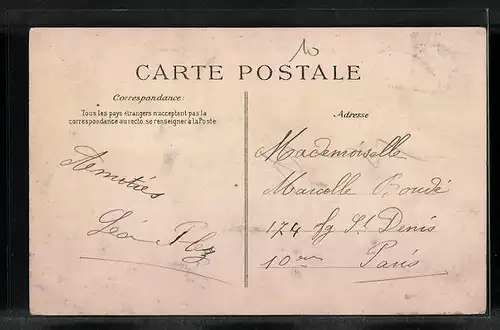 10
CARTE POSTALE
Correspondance:
Tous les pays étrangers n'acceptent pas la
correspondance au recto, se renseigner à la Poste
Adresse
Amitiés
Léon
Mademoiselle
Marcelle
174 fg St Denis
10me Paris